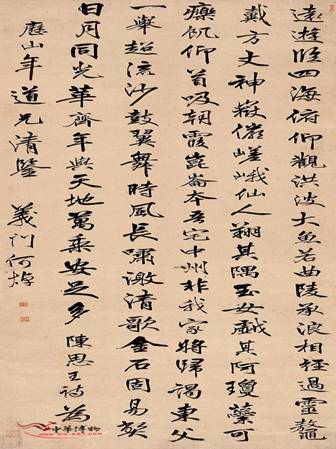 遠遊臨四海俯仰觀洪波大魚若曲陵承浪相經過靈鼇
戴方丈神嶽儼嵯峨仙人翔其隅玉女戲其阿瓊蘂可
療飢仰首吸朝霞崑崙本吾宅中州非我家將歸謁東父
一舉超流沙鼓翼舞時風長嘯激清歌金石固易弊
日月同光華齊年與天地萬乘安足多 陳思王詩為
山年道兄清鑒 義門何焯
中華博物